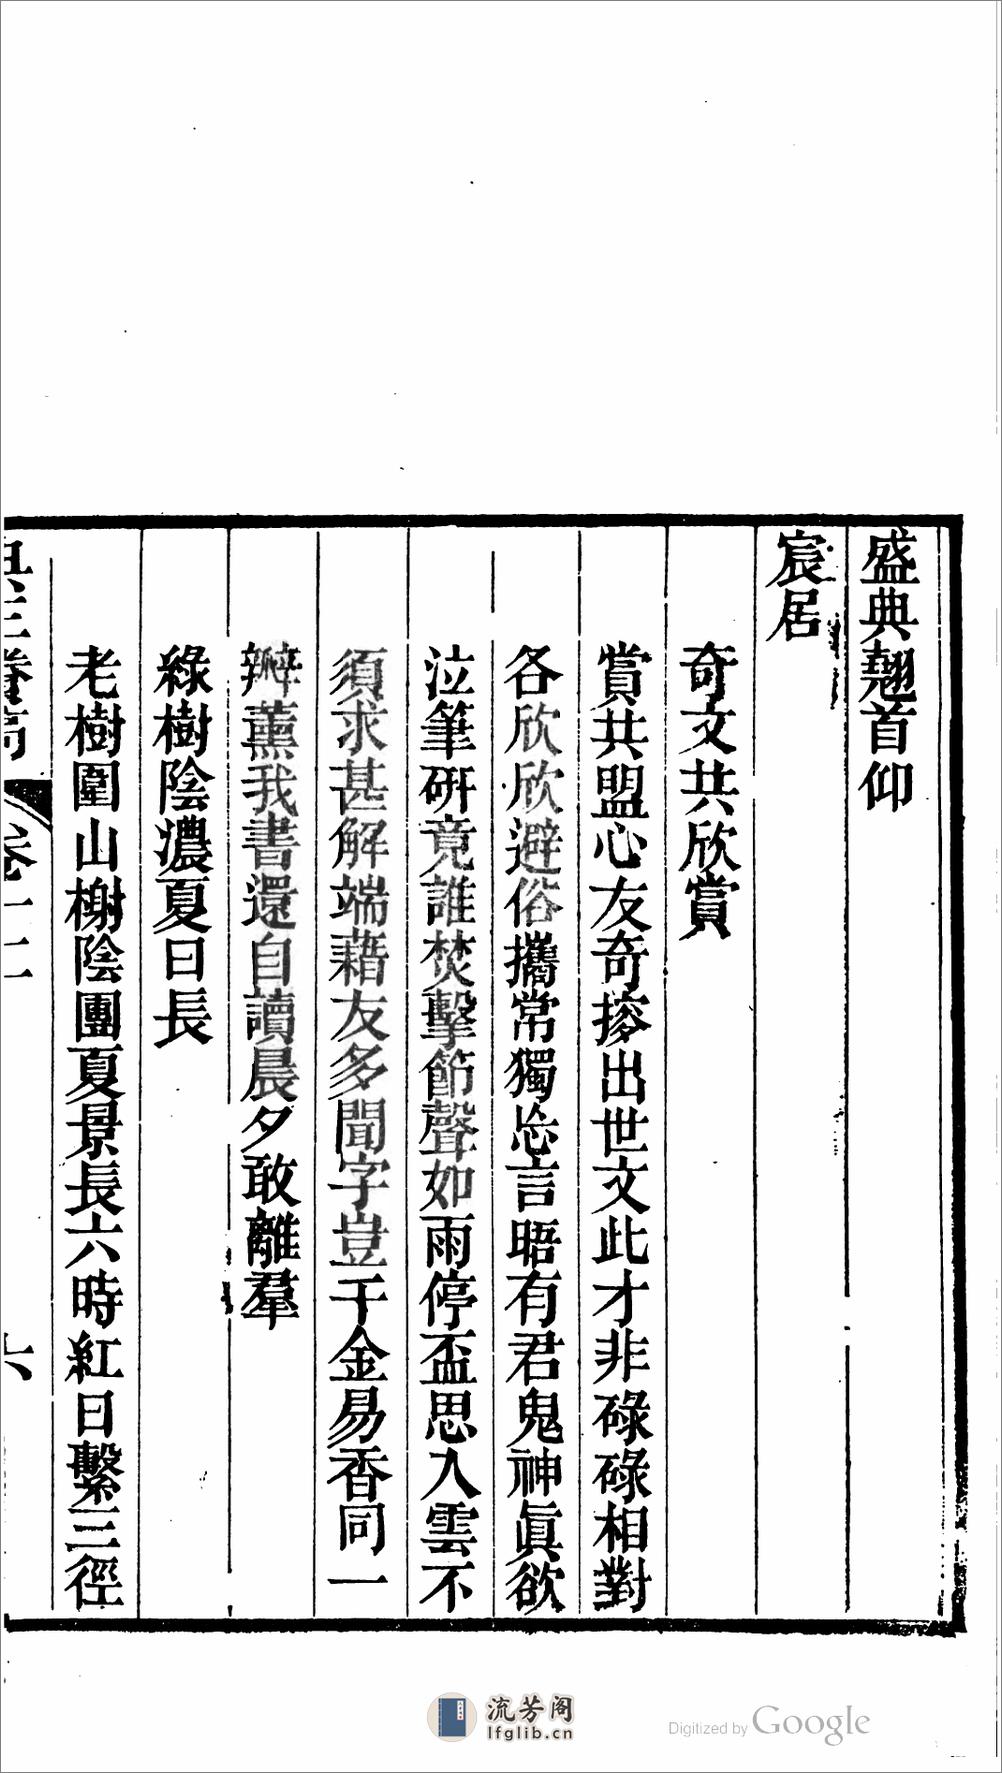 盛典翹首仰
宸居
奇文共欣賞
賞共盟心友奇摉出世文此才非碌碌相對
各欣欣避俗攜常獨忘言晤有君鬼神眞欲
泣筆硏竟誰焚擊節聲如雨停盃思入雲不
須求甚解端藉友多聞字豈千金易香同一
瓣薰我書還自讀晨夕敢離羣
綠樹陰濃夏日長
老樹圍山榭陰團夏景長六時紅日繫三徑
養稿 卷十二 六
流芳阁
lfglib.cn
Digitized by Google